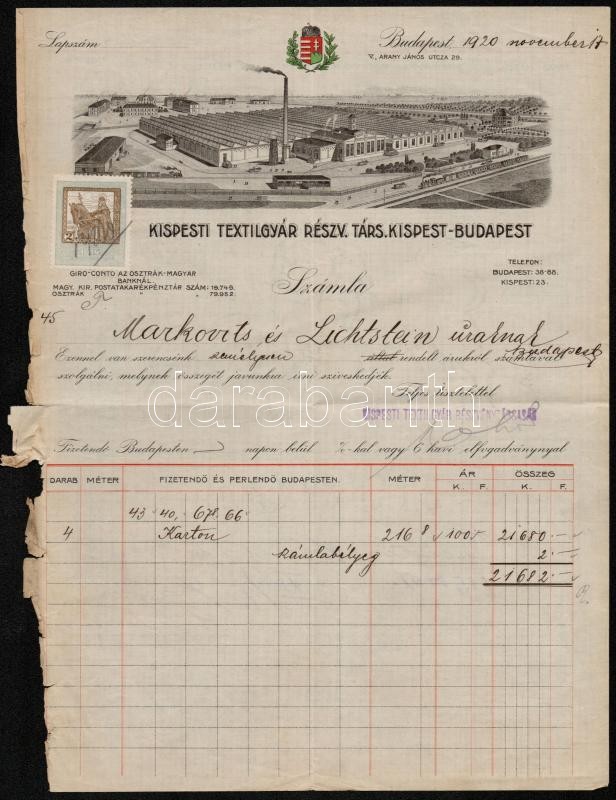 Lapszám
Budapest, 1920 november 17
V., ARANY JÁNOS UTCZA 29.
KISPESTI TEXTILGYÁR RÉSZV. TÁRS. KISPEST-BUDAPEST
GIRO-CONTO AZ OSZTRÁK-MAGYAR
BANKNÁL.
MAGY. KIR. POSTATAKARÉKPÉNZTÁR SZÁM: 19.749.
OSZTRÁK " " 79.952.
TELEFON:
BUDAPEST: 38-88.
KISPEST: 23.
Számla
45
Markovits és Lichtstein uraknak
Budapest
Ezennel van szerencsénk személyesen rendelt árukról számlával
szolgálni, melynek összegét javunkra írni sziveskedjék.
Teljes tisztelettel
KISPESTI TEXTILGYÁR RÉSZVÉNYTÁRSASÁG
darabanth
Fizetendő Budapesten napon belül %-kal vagy 6 havi elfogadványnyal
DARAB MÉTER FIZETENDŐ ÉS PERLENDŐ BUDAPESTEN. MÉTER ÁR K. F. ÖSSZEG K. F.
43 40, 678, 66
4 Karton 216 8 100 21680.—
számlabélyeg 2.—
21682.—